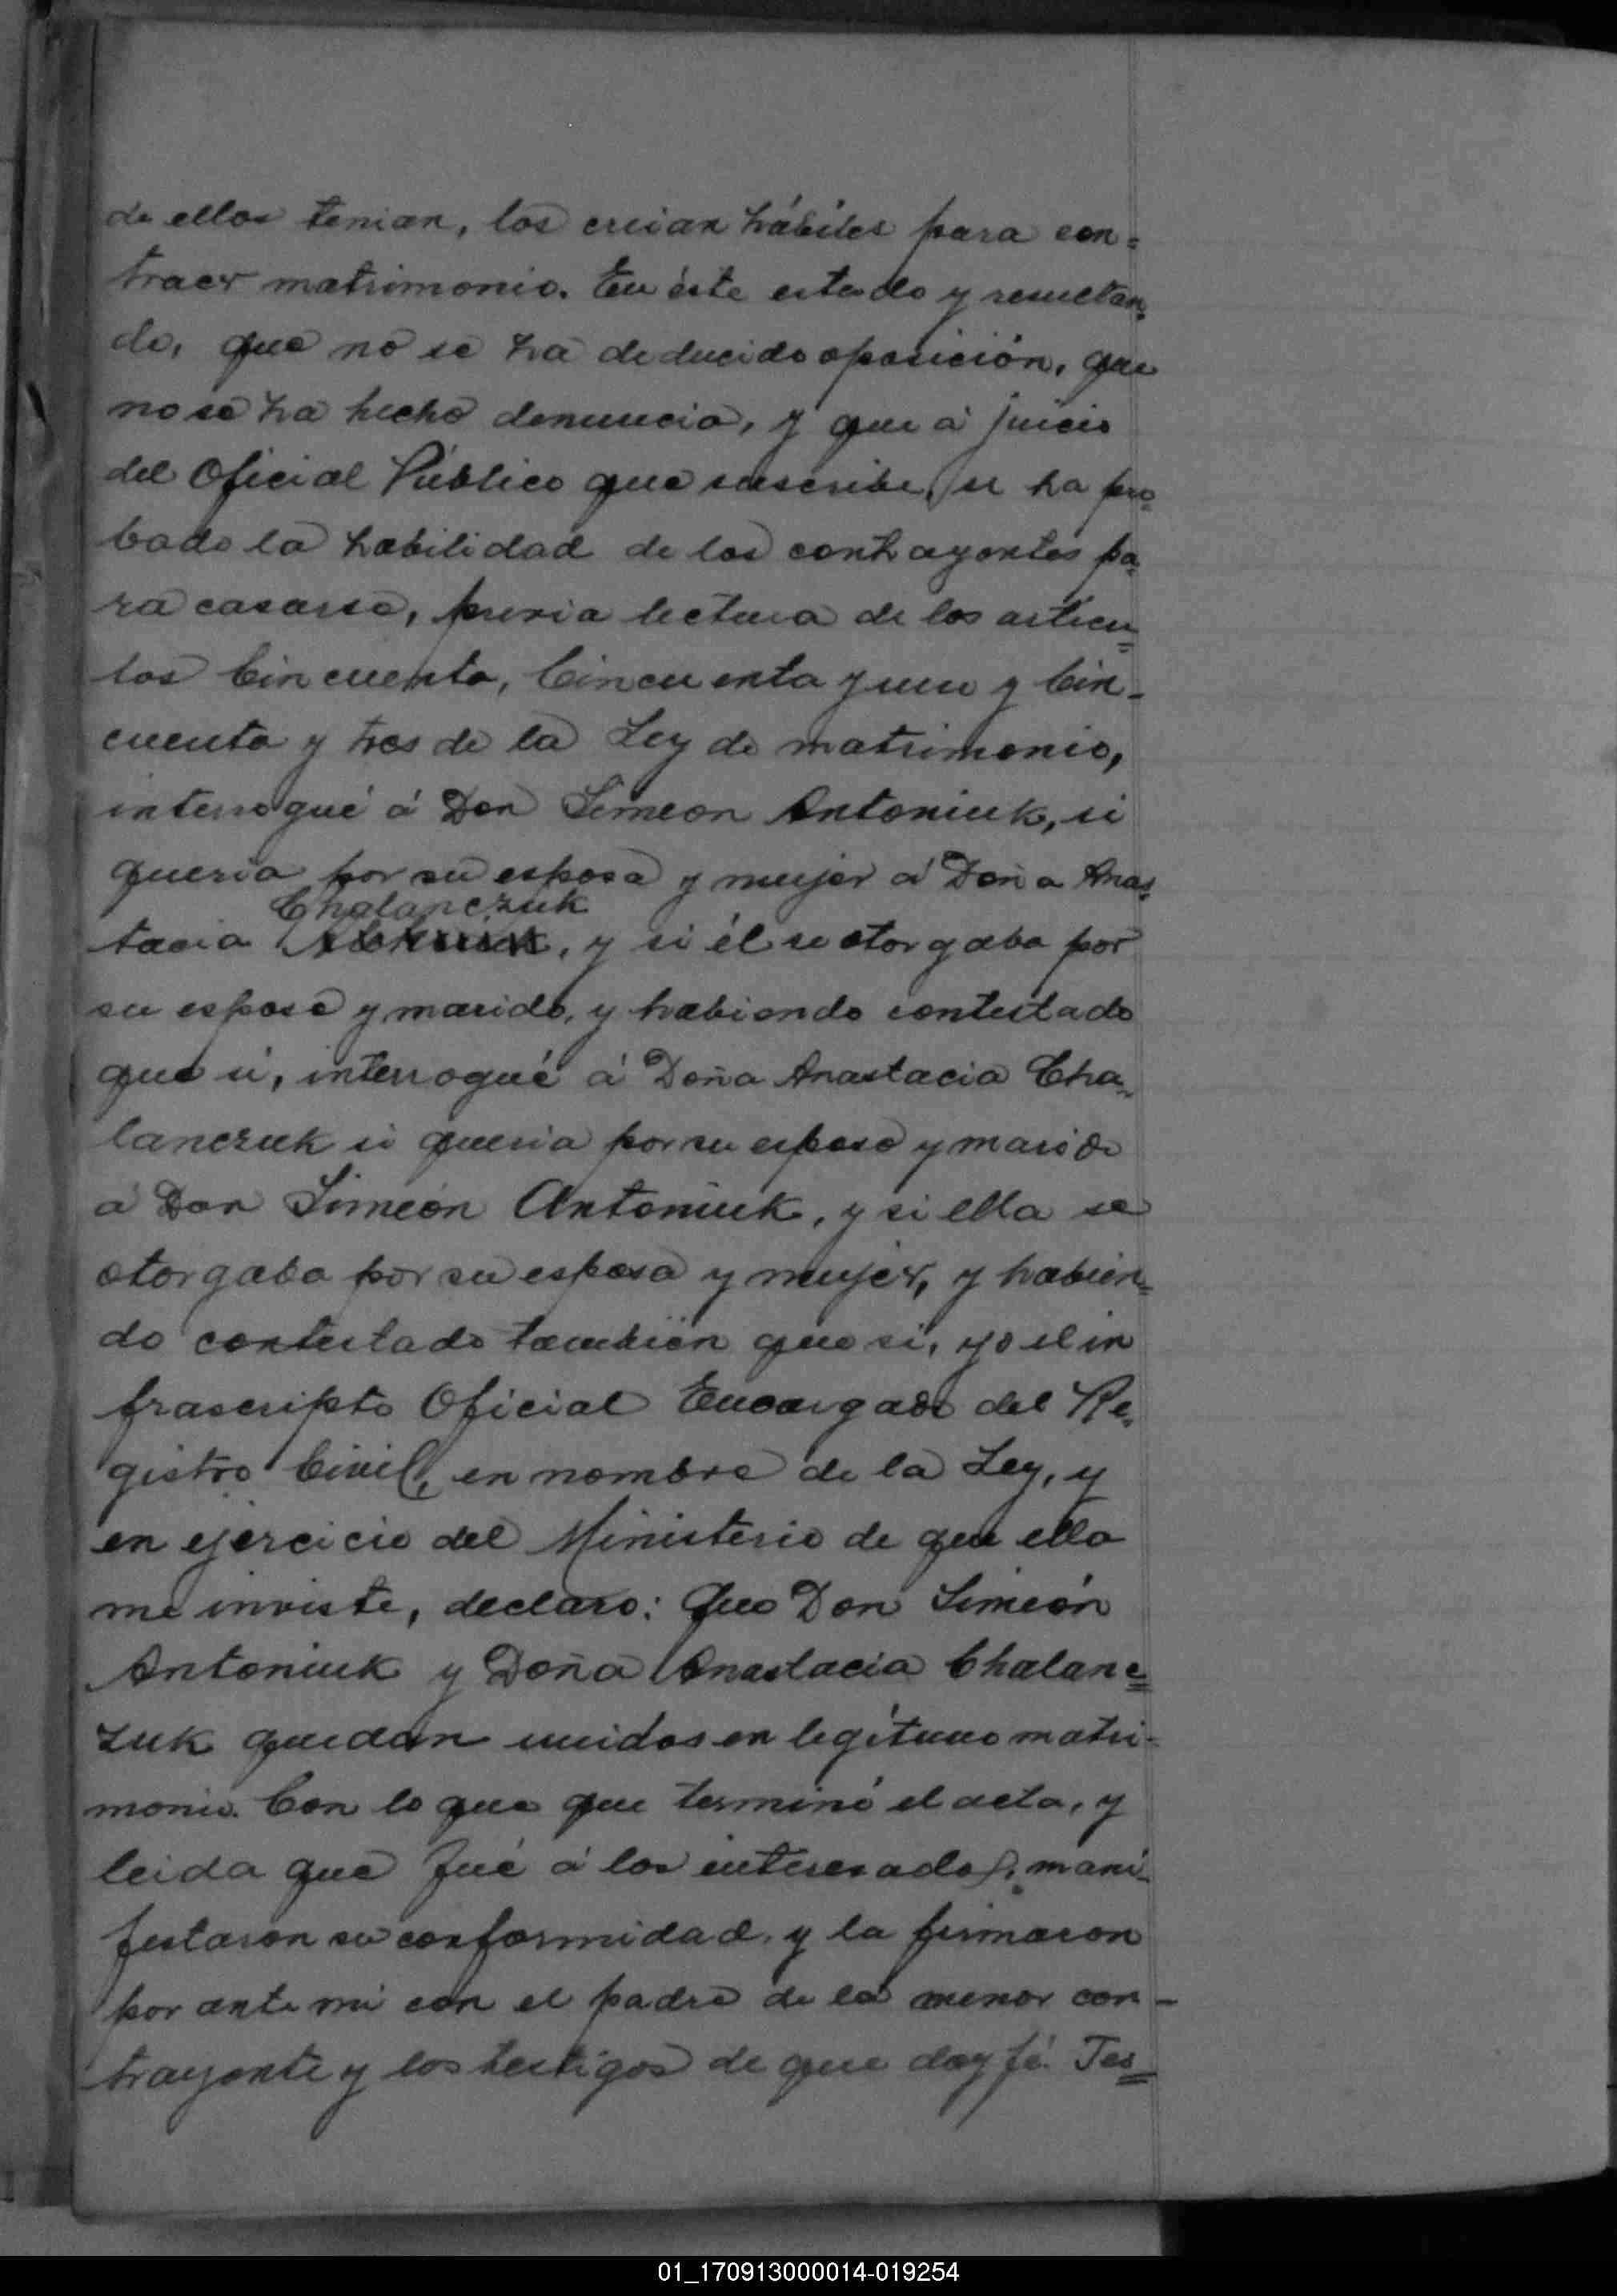 de ellos tenian, los creian hábiles para con=
traer matrimonio. En éste estado y resultan=
do, que no se ha deducido oposición, que
no se ha hecho denuncia, y que á juicio
del Oficial Público que suscribe, se ha pro=
bado la habilidad de los contrayentes pa=
ra casarse, previa lectura de los articu=
los Cincuenta, Cincuenta y uno y Cin-
cuenta y tres de la Ley de matrimonio,
interrogué á Don Simeon Antoniuk, si
queria por su esposa y mujer á Doña Anas=
Chalanczuk
tacia , y si él se otorgaba por
su esposo y marido, y habiendo contestado
que si, interrogué á Doña Anastacia Cha=
lanczuk si queria por su esposo y marido
á Don Simeón Antoniuk, y si ella se
otorgaba por su esposa y mujer, y habien=
do contestado tambien que si, yo el in
frascripto Oficial Encargado del Re=
gistro Civil, en nombre de la Ley, y
en ejercicio del Ministerio de que ella
me inviste, declaro: Que Don Simeón
Antoniuk y Doña Anastacia Chalanc=
zuk quedan unidos en legítimo matri-
monio. Con lo que que terminó el acta, y
leida que fué á los interesados, mani-
festaron su conformidad, y la firmaron
por ante mi con el padre de la menor con-
trayente y los testigos de que doy fé. Tes=
01_170913000014-019254